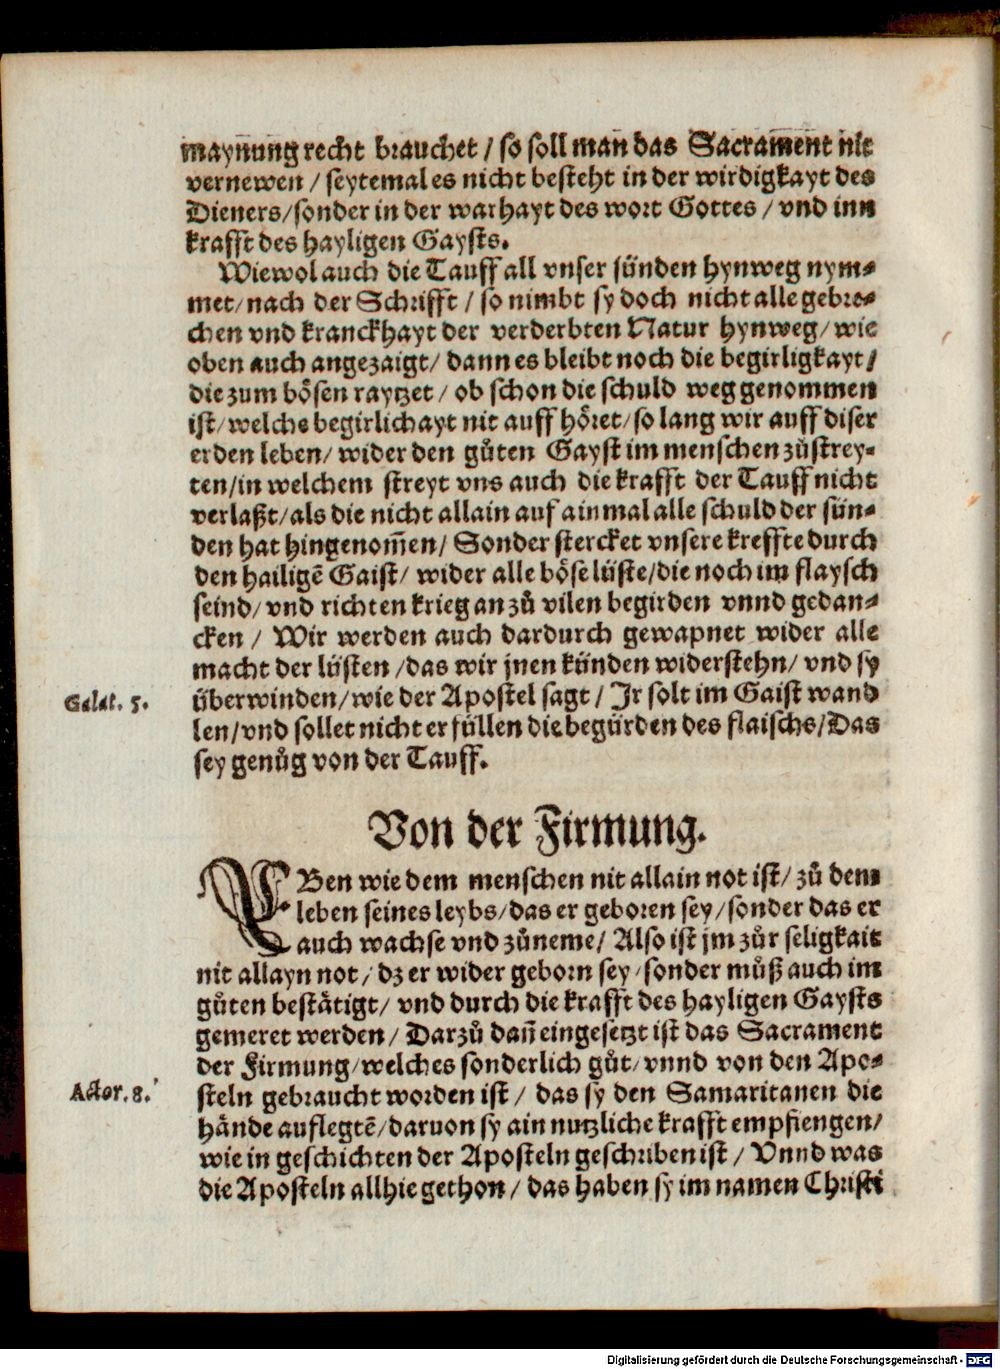 maynung recht brauchet / so soll man das Sacrament nit
vernewen / seytemal es nicht besteht in der wirdigkayt des
Dieners/sonder in der warhayt des wort Gottes / vnd inn
krafft des hayligen Gaysts.
Wiewol auch die Tauff all vnser sünden hynweg nym⸗
met/nach der Schrifft / so nimbt sy doch nicht alle gebre⸗
chen vnd kranckhayt der verderbten Natur hynweg/wie
oben auch angezaigt/ dann es bleibt noch die begirligkayt/
die zum bösen raytzet / ob schon die schuld weg genommen
ist/welche begirlichayt nit auff höret/so lang wir auff diser
erden leben/ wider den gůten Gayst im menschen zůstrey⸗
ten/in welchem streyt vns auch die krafft der Tauff nicht
verlaßt/als die nicht allain auf ainmal alle schuld der sün⸗
den hat hingenom̃en/ Sonder stercket vnsere kreffte durch
den hailigẽ Gaist/ wider alle böse lüste/die noch im flaysch
seind/vnd richten krieg an zů vilen begirden vnnd gedan⸗
cken / Wir werden auch dardurch gewapnet wider alle
macht der lüsten /das wir jnen künden widerstehn/ vnd sy
Galat. 5.
überwinden/wie der Apostel sagt / Jr solt im Gaist wand
len/vnd sollet nicht erfüllen die begürden des flaischs/Das
sey genůg von der Tauff.
Von der Firmung.
EBen wie dem menschen nit allain not ist/ zů dem
leben seines leybs/das er geboren sey/sonder das er
auch wachse vnd zůneme/ Also ist jm zůr seligkait
nit allayn not/ dz er wider geborn sey/sonder můß auch im
gůten bestätigt/ vnd durch die krafft des hayligen Gaysts
gemeret werden/ Darzů dañ eingesetzt ist das Sacrament
der Firmung/welches sonderlich gůt/vnnd von den Apo⸗
Actor. 8.
steln gebraucht worden ist / das sy den Samaritanen die
hände auflegtẽ/daruon sy ain nutzliche krafft empfiengen/
wie in geschichten der Aposteln geschriben ist / Vnnd was
die Aposteln allhie gethon / das haben sy im namen Christi
Digitalisierung gefördert durch die Deutsche Forschungsgemeinschaft - DFG